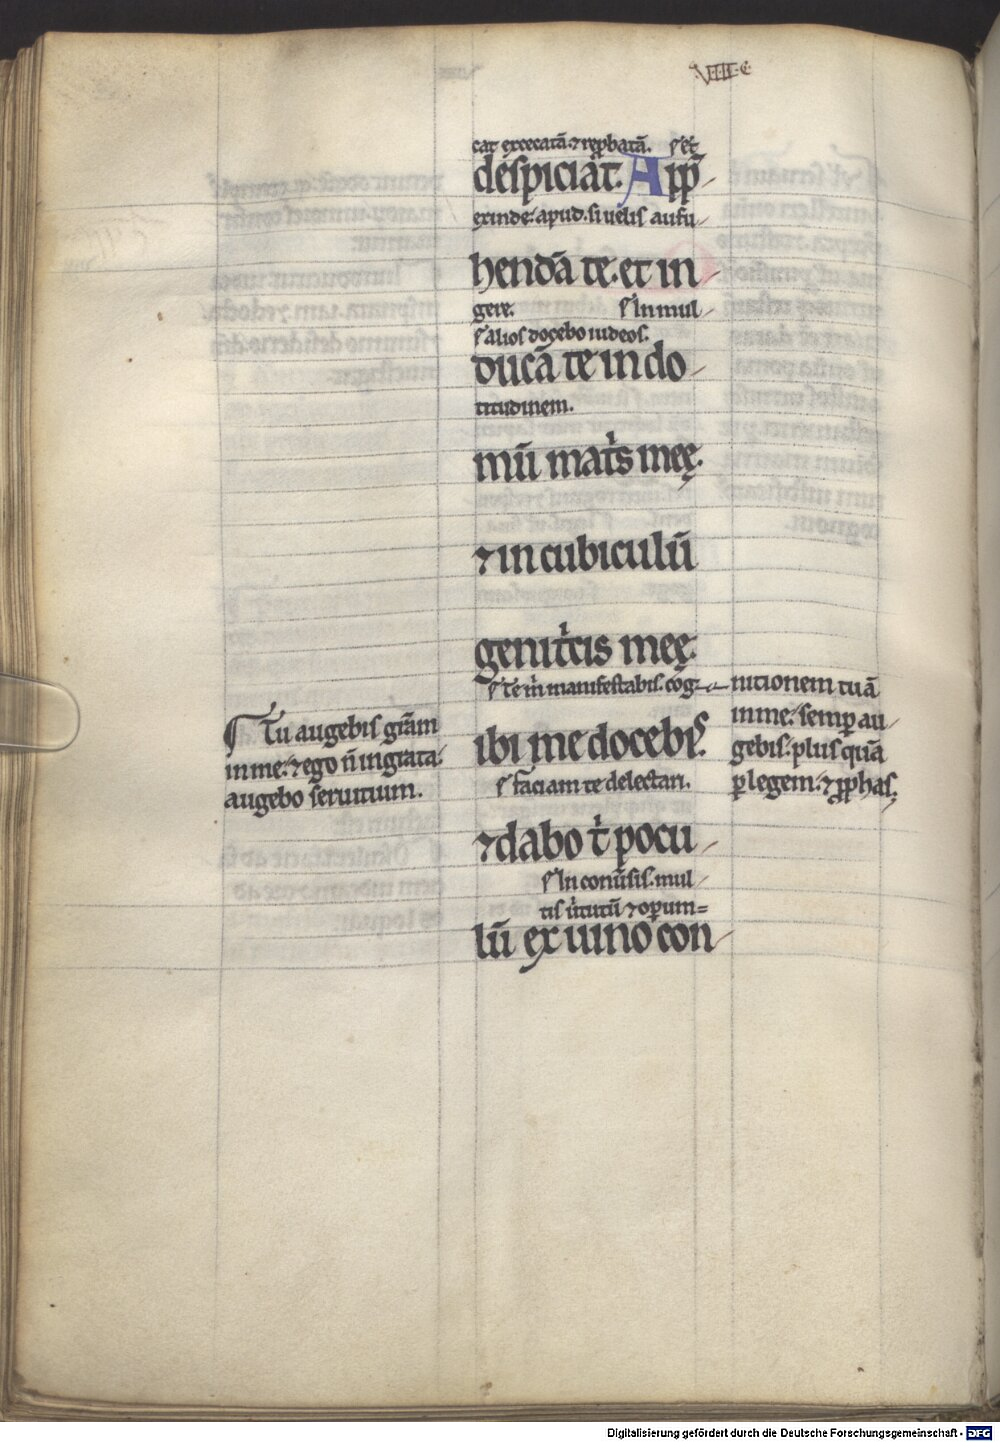 VIIII·C·
cat excecatā ⁊ rep̱batā. s̄ et
despiciat. App̄
exinde: apud. si uelis aufu
hendā te. et in
gere. s̄ In mul
s̄ alios docebo iudeos.
ducā te in do
titudinem.
mū mat̓s meę.
⁊ in cubiculū
genit̓cis meę.
s̄ te m̄ manifestabis. cōg
nitionem tuā
in me: semp̱ au
gebis. plus quā
p̱ legem. ⁊ p̱phas.
¶ Tu augebis grām
in me: ⁊ ego n̄ ingrata.
augebo seruitium.
ibi me docebis.
s̄ faciam te delectari.
⁊ dabo t̓ pocu
s̄ In conūsis. mul
tis ūtutū ⁊ op̱um =
lū ex uino con
Digitalisierung gefördert durch die Deutsche Forschungsgemeinschaft - DFG